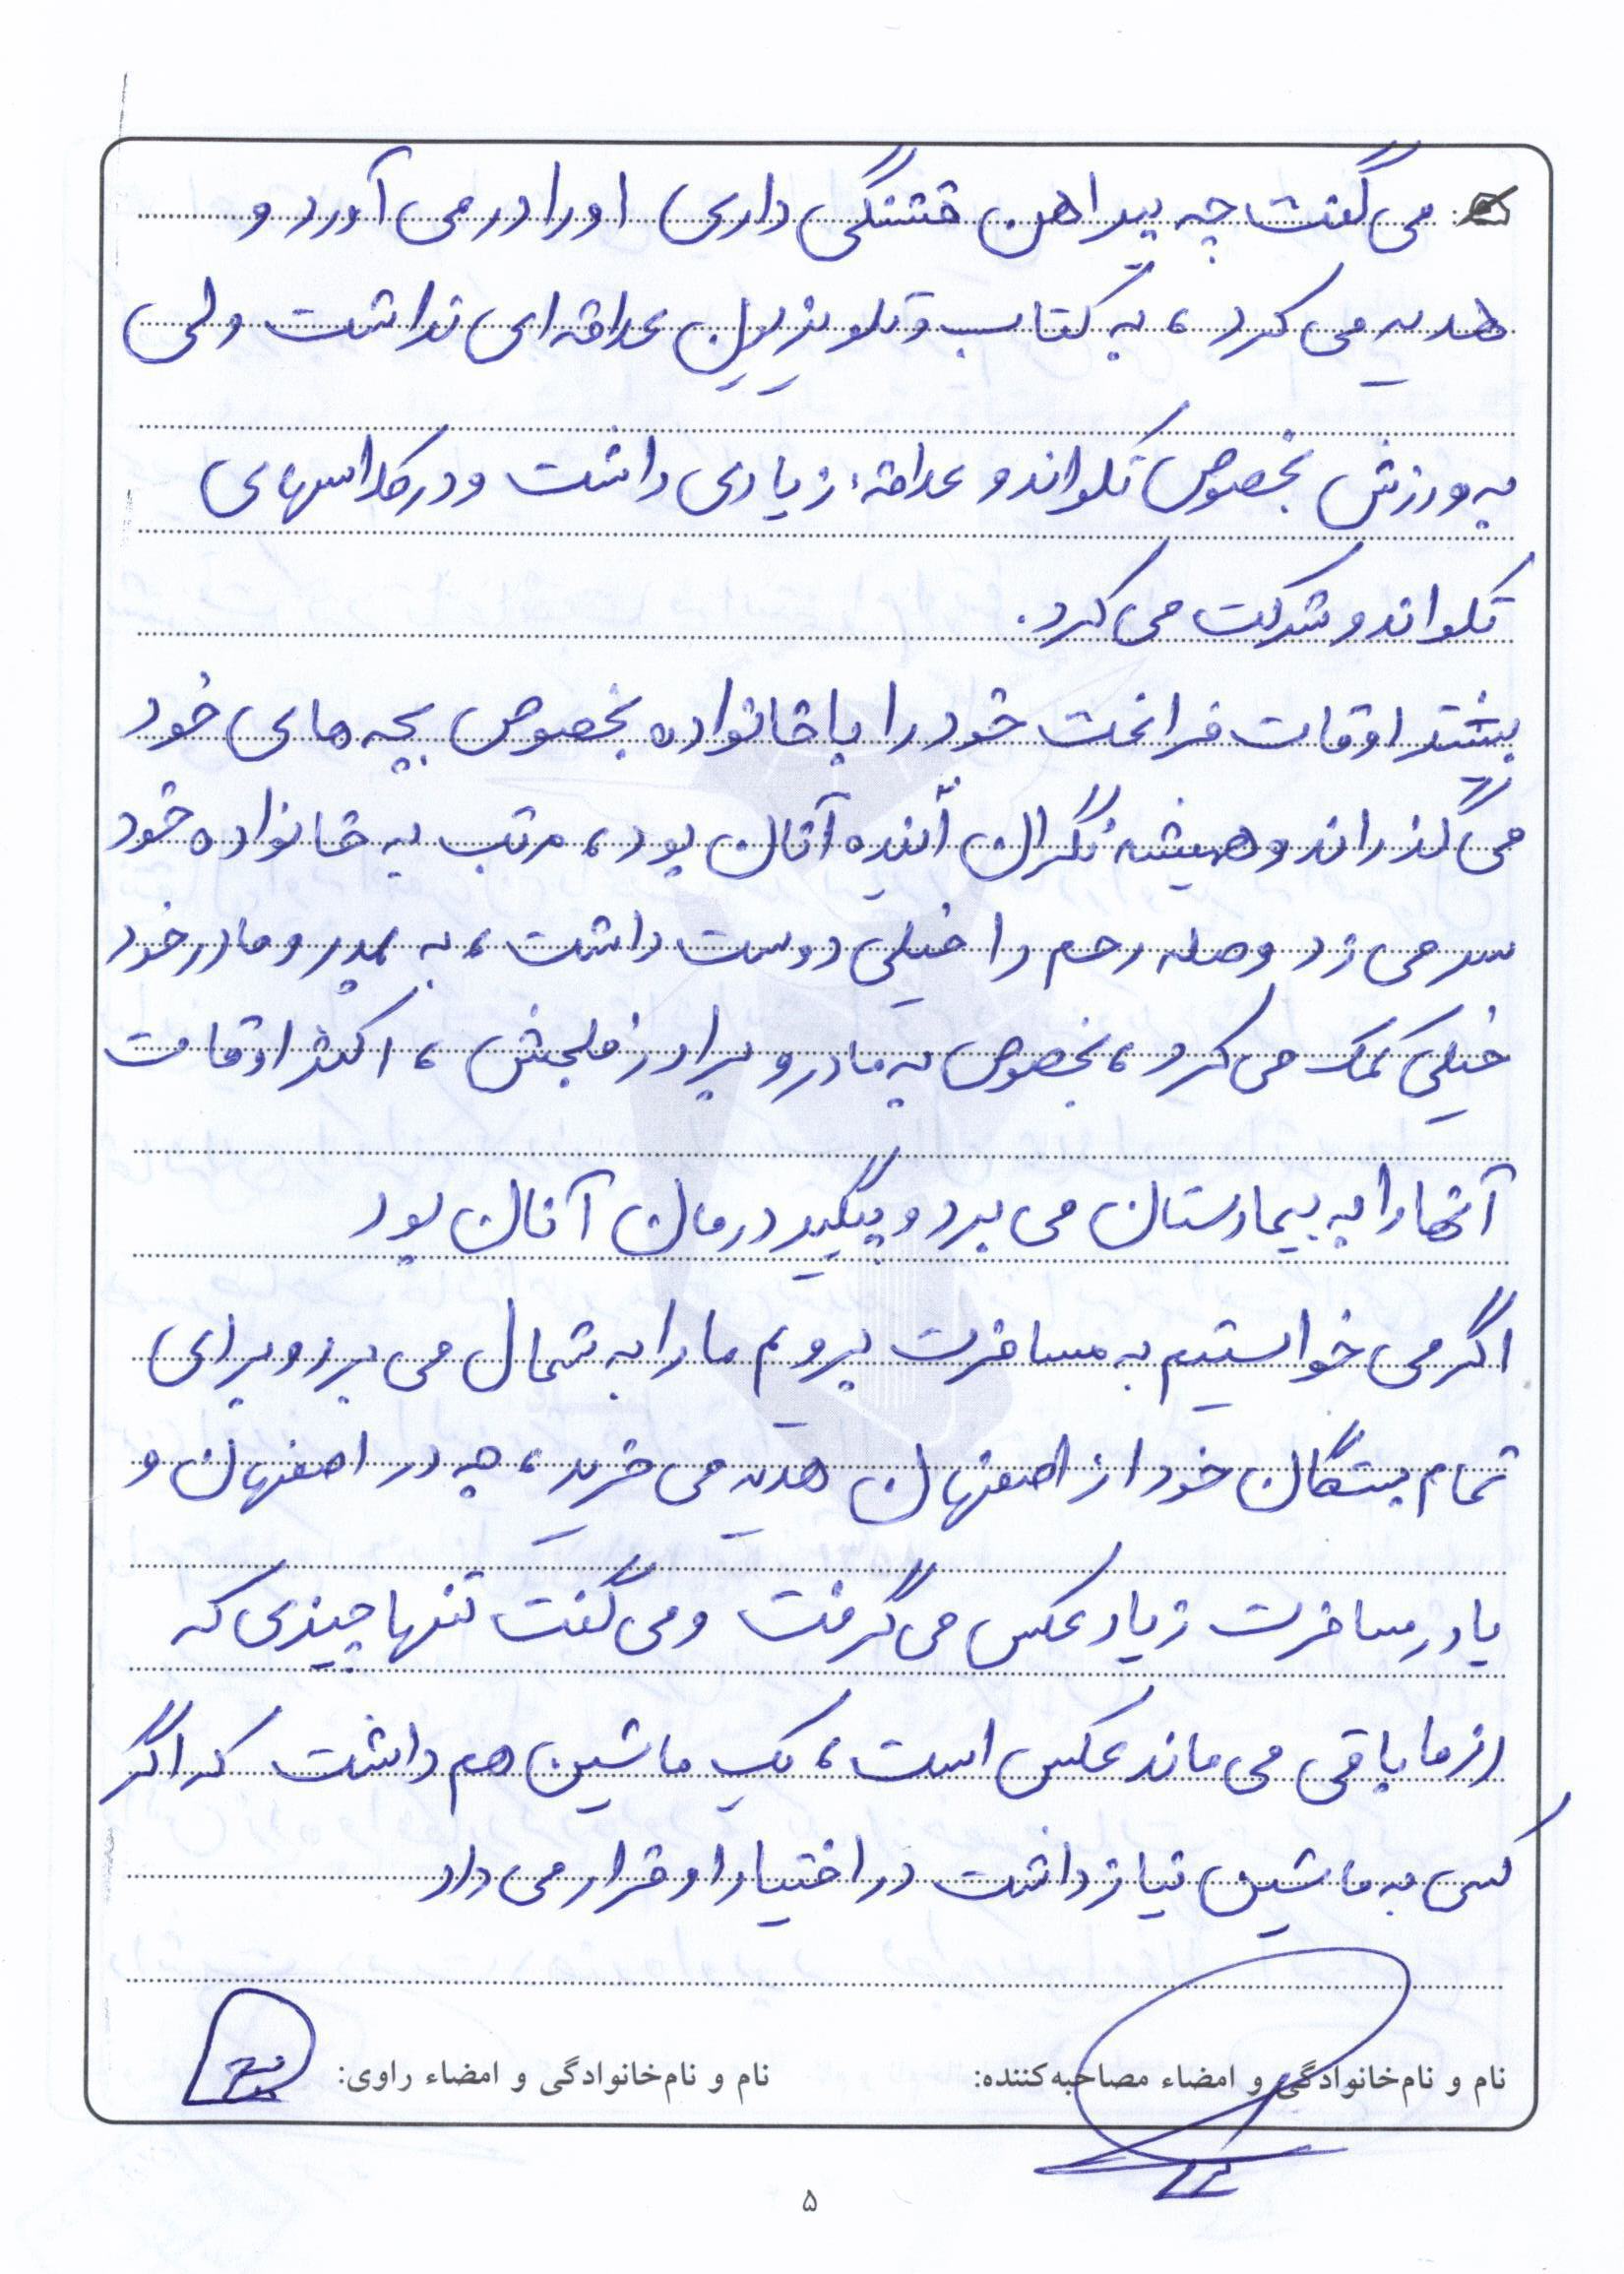 می گفت چه پیراهن قشنگی داری او را در می آورد و
هدیه می کرد، به کتاب و تلویزیون علاقه ای نداشت ولی
به ورزش بخصوص تکواندو علاقهٔ زیادی داشت و در کلاسهای
تکواندو شرکت می کرد.
بیشتر اوقات فراغت خود را با خانواده بخصوص بچه های خود
می گذراند و همیشه نگران آینده آنان بود، مرتب به خانواده خود
سر می زد و صله رحم را خیلی دوست داشت، به پدر و مادر خود
خیلی کمک می کرد، بخصوص به مادر و برادر فلجش، اکثر اوقات
آنها را به بیمارستان می برد و پیگیر درمان آنان بود
اگر می خواستیم به مسافرت برویم ما را به شمال می برد و برای
تمام بستگان خود از اصفهان هدیه می خرید، چه در اصفهان و
یا در مسافرت زیاد عکس می گرفت و می گفت تنها چیزی که
از ما باقی می ماند عکس است، یک ماشین هم داشت که اگر
کسی به ماشین نیاز داشت در اختیار او قرار می داد
نام و نام‌خانوادگی و امضاء مصاحبه‌کننده: نام و نام‌خانوادگی و امضاء راوی:
۵